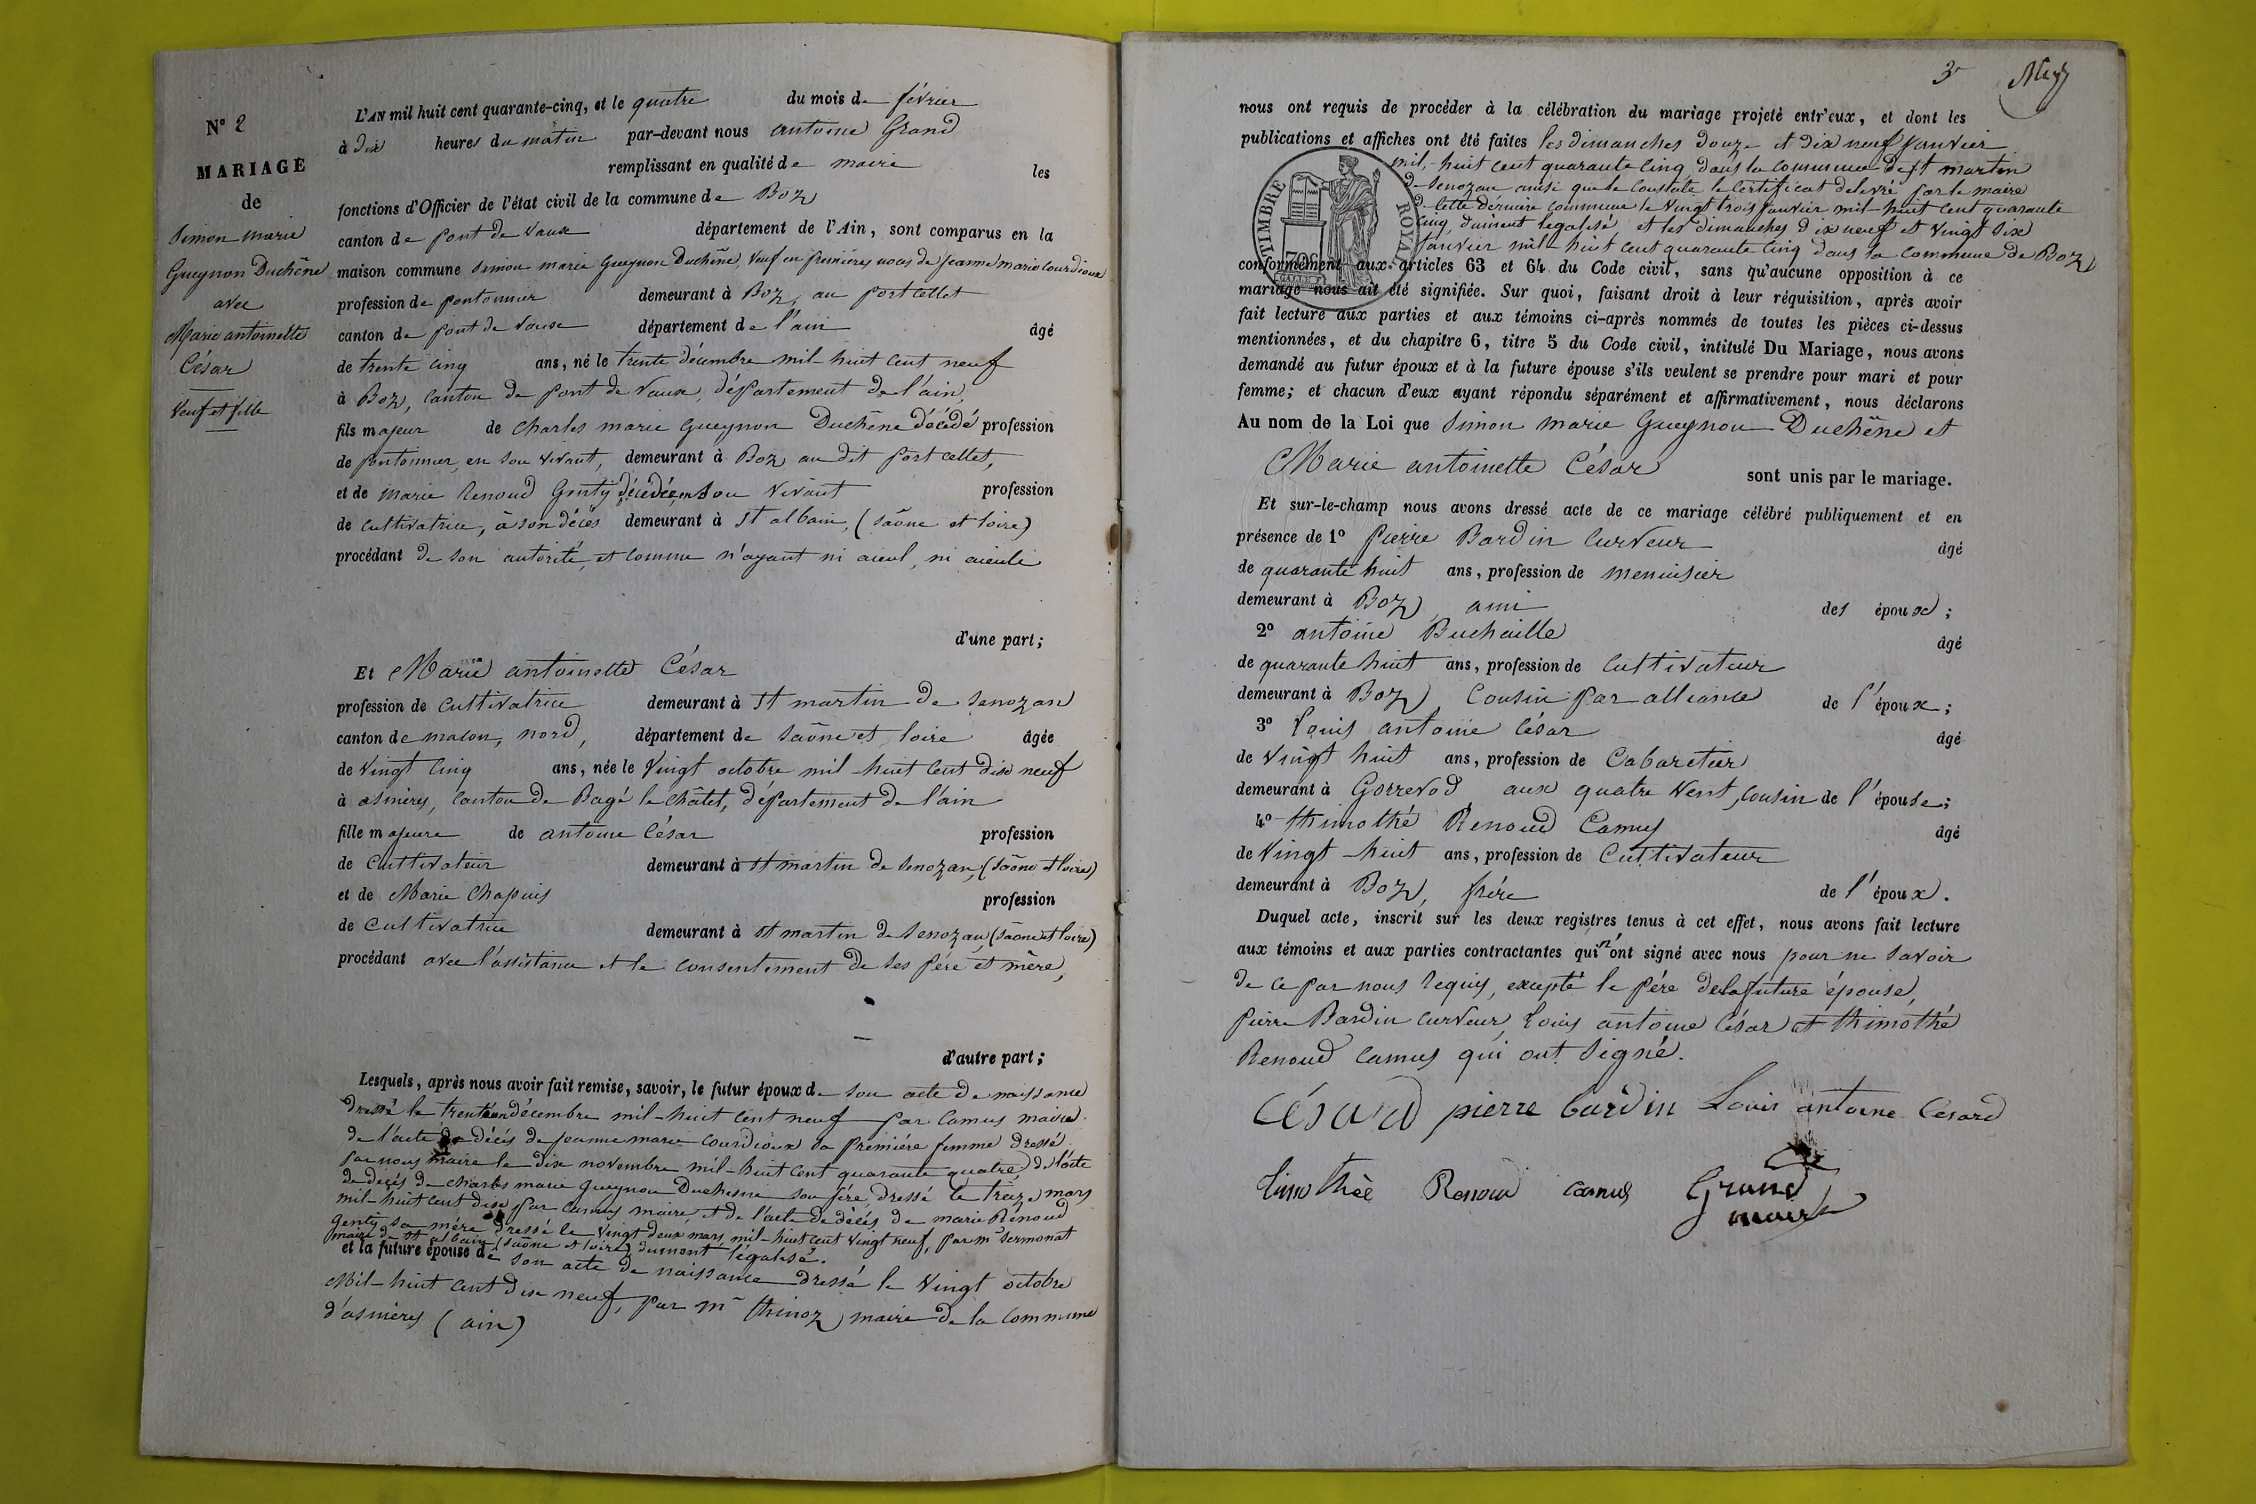 N° 2
MARIAGE
de
Simon marie
Gueynon Duchêne
avec
Marie antoinette
César
Veuf et fille
L'AN mil huit cent quarante-cinq, et le quatre du mois de février
à dix heures du matin par-devant nous antoine Grand
remplissant en qualité de maire les
fonctions d'Officier de l'état civil de la commune de Boz
canton de pont de Vaux département de l'Ain, sont comparus en la
maison commune Simon marie Gueynon Duchêne, Veuf en premières noces de Jeanne marie Courdioux
profession de pontonnier demeurant à Boz, au port Cellet
canton de pont de Vaux département de l'ain âgé
de trente cinq ans, né le trente décembre mil huit cent neuf
à Boz, canton de pont de Vaux, département de l'ain,
fils majeur de Charles marie Gueynon Duchêne décédé profession
de pontonnier, en son vivant, demeurant à Boz au dit port cellet,
et de marie Renoud Genty décédée, en son vivant profession
de cultivatrice, à son décès demeurant à St albain, (saône et loire)
procédant de son autorité, et comme n'ayant ni aieul, ni aieule
d'une part;
Et Marie antoinette César
profession de Cultivatrice demeurant à St martin de Senozan
canton de macon, nord, département de Saône et loire âgée
de Vingt cinq ans, née le Vingt octobre mil huit cent dix neuf
à asnières, canton de Bagé le châtel, département de l'ain
fille majeure de antoine César profession
de Cultivateur demeurant à St martin de Senozan, (saône et loire)
et de Marie Chapuis profession
de Cultivatrice demeurant à St martin de Senozan, (saône et loire)
procédant avec l'assistance et le consentement de ses père et mère,
d'autre part;
Lesquels, après nous avoir fait remise, savoir, le futur époux de son acte de naissance
dressé le trente un décembre mil-huit cent neuf par Camus maire.
de l'acte de décès de Jeanne marie Courdioux sa première femme dressé
par nous maire le dix novembre mil-huit cent quarante quatre de l'acte
de décès de Charles marie Gueynon Duchesne son père, dressé le treize mars
mil-huit cent dix par Camus maire, et de l'acte de décès de marie Renoud
Genty sa mère dressé le Vingt deux mars mil-huit cent Vingt neuf, par mr Sermonat
maire de St albain (saône et loire) dument légalisé.
et la future épouse de son acte de naissance dressé le Vingt octobre
Mil-huit cent dix neuf, par mr thinoz maire de la commune
d'asnières (ain)
3e
nous ont requis de procéder à la célébration du mariage projeté entr'eux, et dont les
publications et affiches ont été faites les dimanches douze et dix neuf Janvier
mil-huit cent quarante cinq, dans la commune de St martin
de Senozan ainsi que le Constate le Certificat délivré par le maire
de Cette dernière commune le Vingt trois Janvier mil-huit cent quarante
cinq, dument légalisé, et les dimanches dix neuf et Vingt six
Janvier mil-huit cent quarante cinq dans la commune de Boz
TIMBRE ROYAL
conformément aux articles 63 et 64 du Code civil, sans qu'aucune opposition à ce
mariage nous ait été signifiée. Sur quoi, faisant droit à leur réquisition, après avoir
fait lecture aux parties et aux témoins ci-après nommés de toutes les pièces ci-dessus
mentionnées, et du chapitre 6, titre 5 du Code civil, intitulé Du Mariage, nous avons
demandé au futur époux et à la future épouse s'ils veulent se prendre pour mari et pour
femme; et chacun d'eux ayant répondu séparément et affirmativement, nous déclarons
Au nom de la Loi que Simon marie Gueynon Duchêne et
Marie antoinette César sont unis par le mariage.
Et sur-le-champ nous avons dressé acte de ce mariage célébré publiquement et en
présence de 1° Pierre Bardin Curveur âgé
de quarante huit ans, profession de menuisier
demeurant à Boz, ami des époux;
2° antoine Buchaille âgé
de quarante huit ans, profession de Cultivateur
demeurant à Boz, Cousin par alliance de l'époux;
3° Louis antoine César âgé
de Vingt huit ans, profession de Cabaretier
demeurant à Gorrevod aux quatre Vent, Cousin de l'épouse;
4° thimothé Renoud Camus âgé
de Vingt huit ans, profession de Cultivateur
demeurant à Boz, frére de l'époux.
Duquel acte, inscrit sur les deux registres tenus à cet effet, nous avons fait lecture
aux témoins et aux parties contractantes qui n'ont signé avec nous pour ne savoir
de ce par nous requis, excepté le père de la future épouse,
Pierre Bardin Curveur, Louis antoine César et thimothé
Renoud Camus qui ont signé.
César d pierre bardin Louis antoine Cesard
timothée Renoud camus Grand
maire